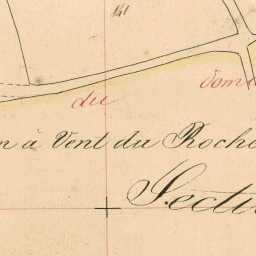 141
du
n à Vent du Roche
Secti